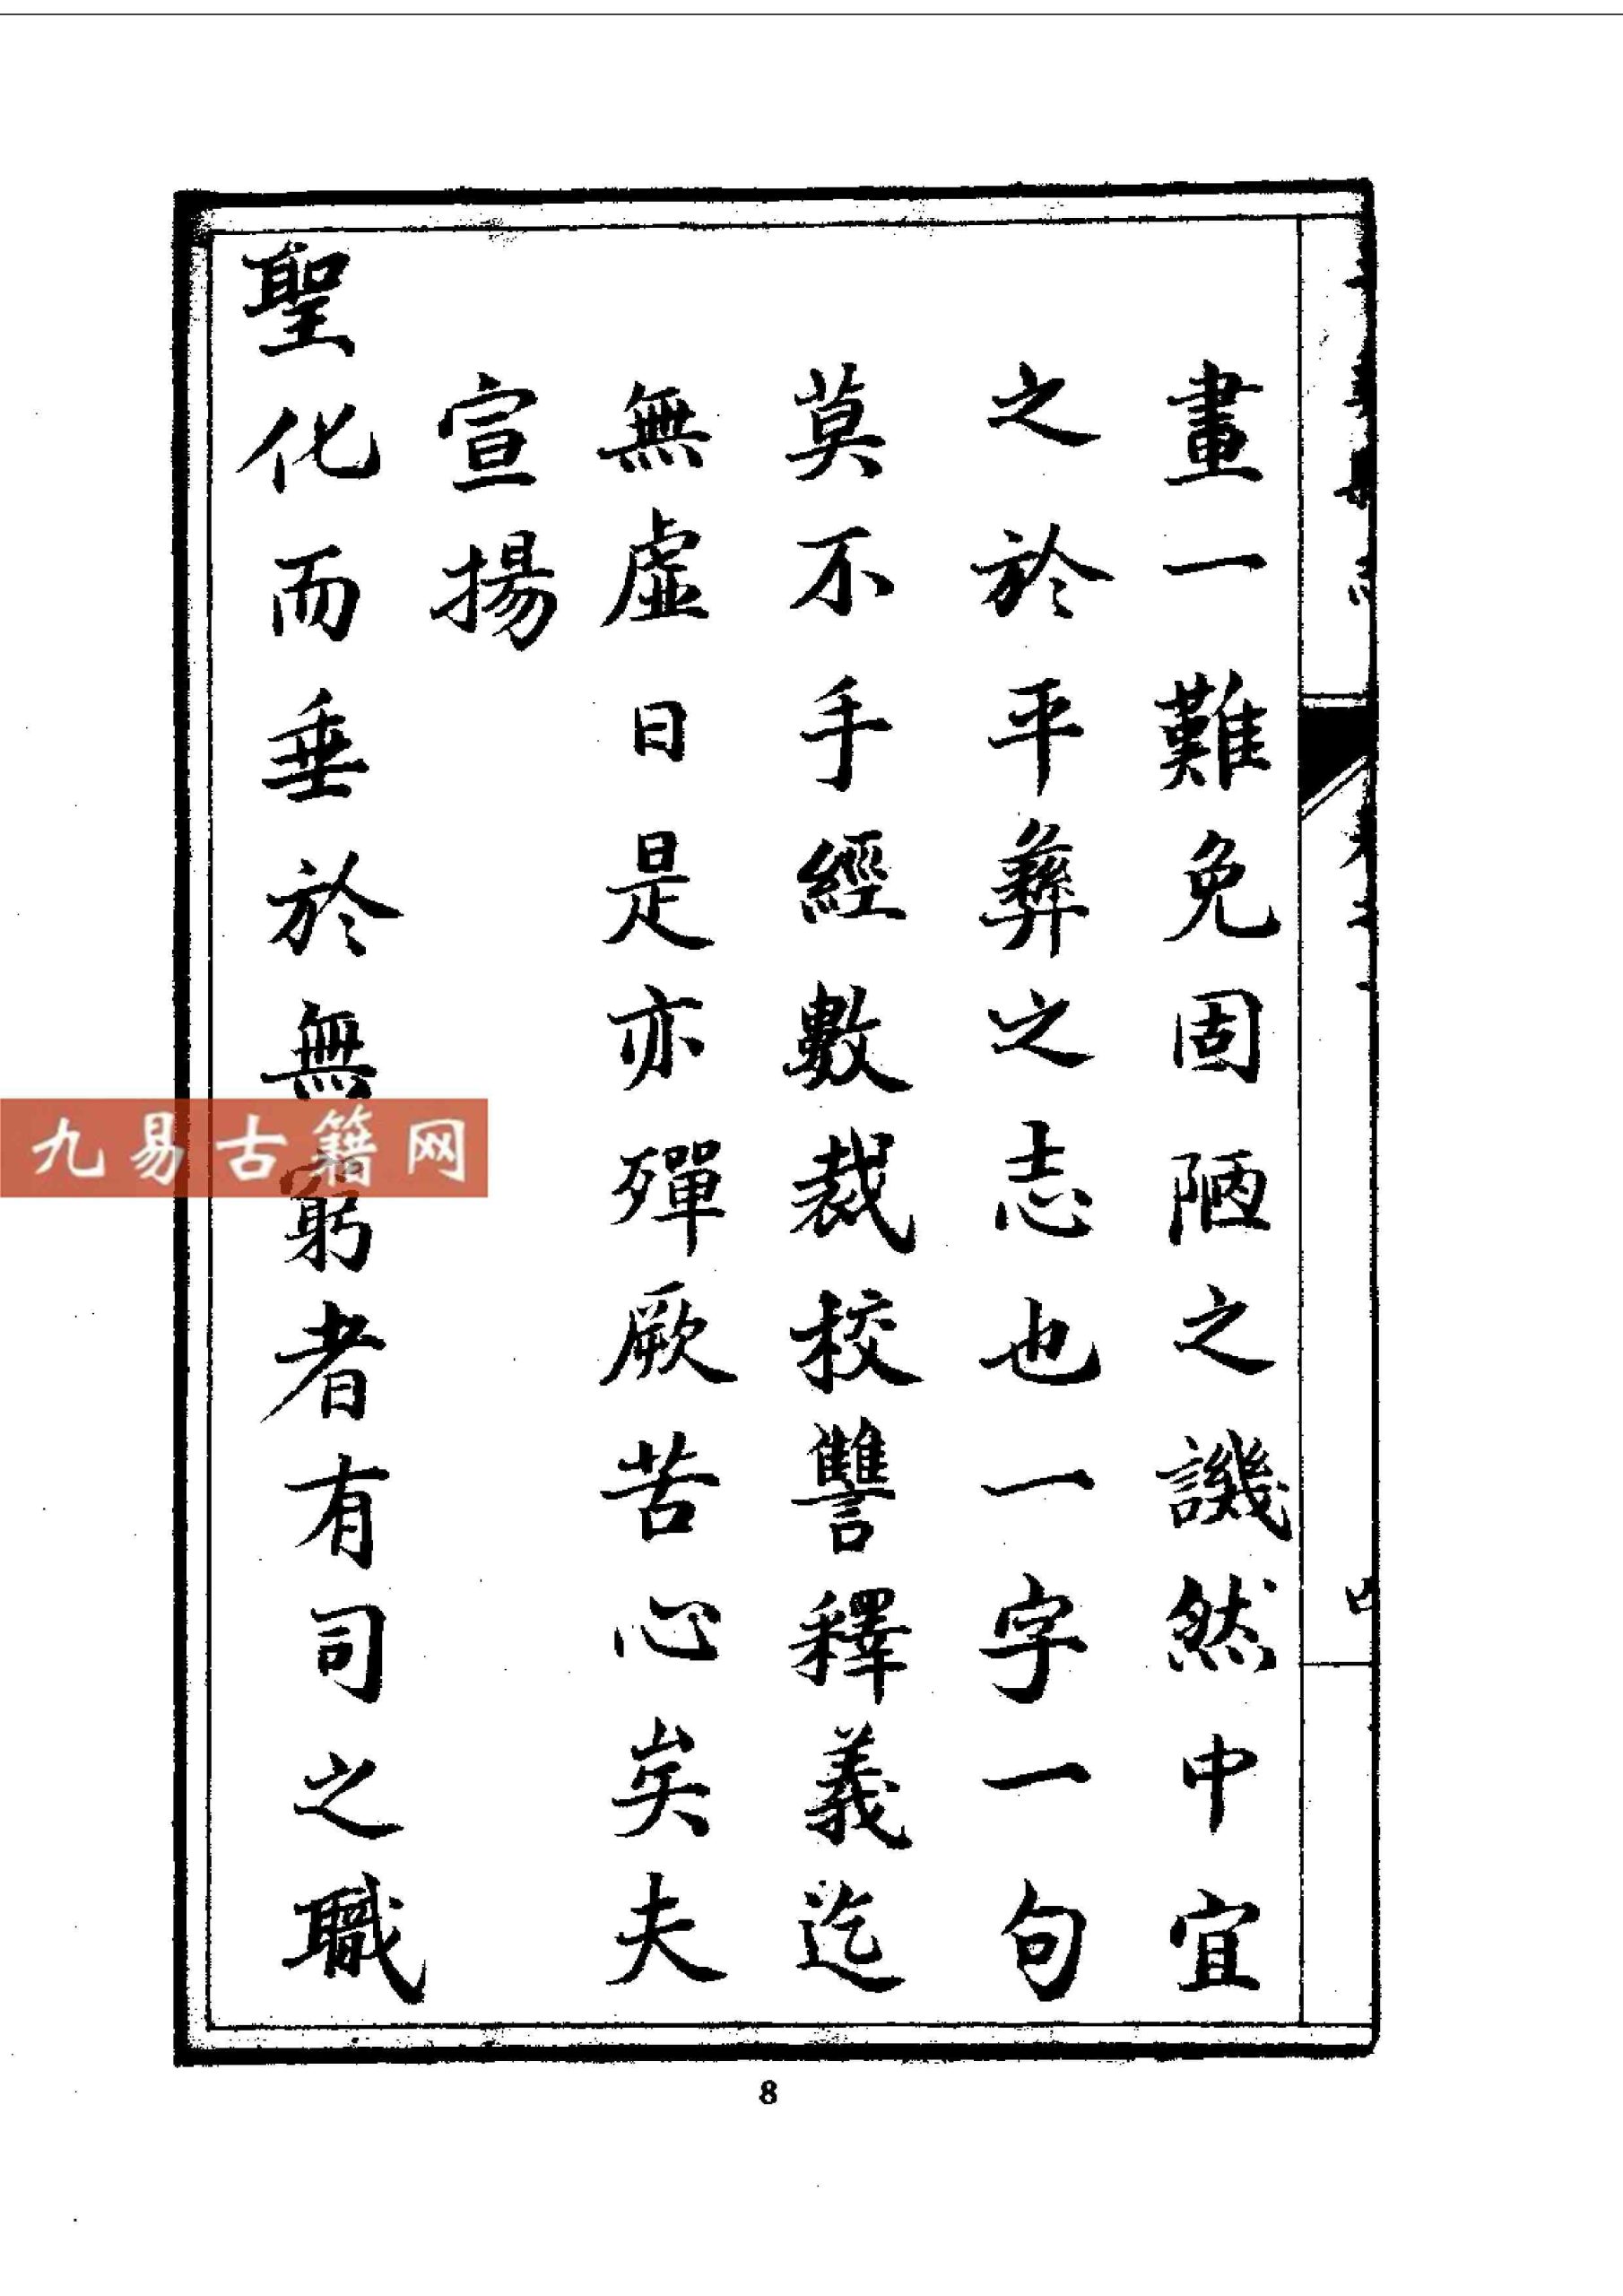 畫一難免固陋之譏然中宜
之於平彝之志也一字一句
莫不手經數裁校讐釋義迄
無虛日是亦殫厥苦心矣夫
宣揚
聖化而垂於無窮者有司之職
九易古籍网
8